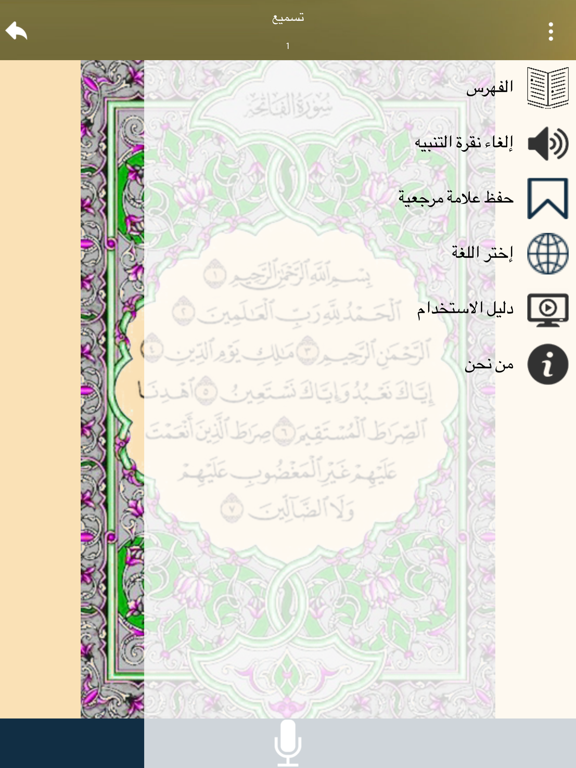 تسميع
1
الفهرس
إلغاء نقرة التنبيه
حفظ علامة مرجعية
إختر اللغة
دليل الاستخدام
من نحن
سُورَةُ الفَاتِحَة
بِسْمِ ٱللَّهِ ٱلرَّحْمَٰنِ ٱلرَّحِيمِ ١
ٱلْحَمْدُ لِلَّهِ رَبِّ ٱلْعَٰلَمِينَ ٢
ٱلرَّحْمَٰنِ ٱلرَّحِيمِ ٣ مَٰلِكِ يَوْمِ ٱلدِّينِ ٤
إِيَّاكَ نَعْبُدُ وَإِيَّاكَ نَسْتَعِينُ ٥ ٱهْدِنَا
ٱلصِّرَٰطَ ٱلْمُسْتَقِيمَ ٦ صِرَٰطَ ٱلَّذِينَ أَنْعَمْتَ
عَلَيْهِمْ غَيْرِ ٱلْمَغْضُوبِ عَلَيْهِمْ
وَلَا ٱلضَّآلِّينَ ٧